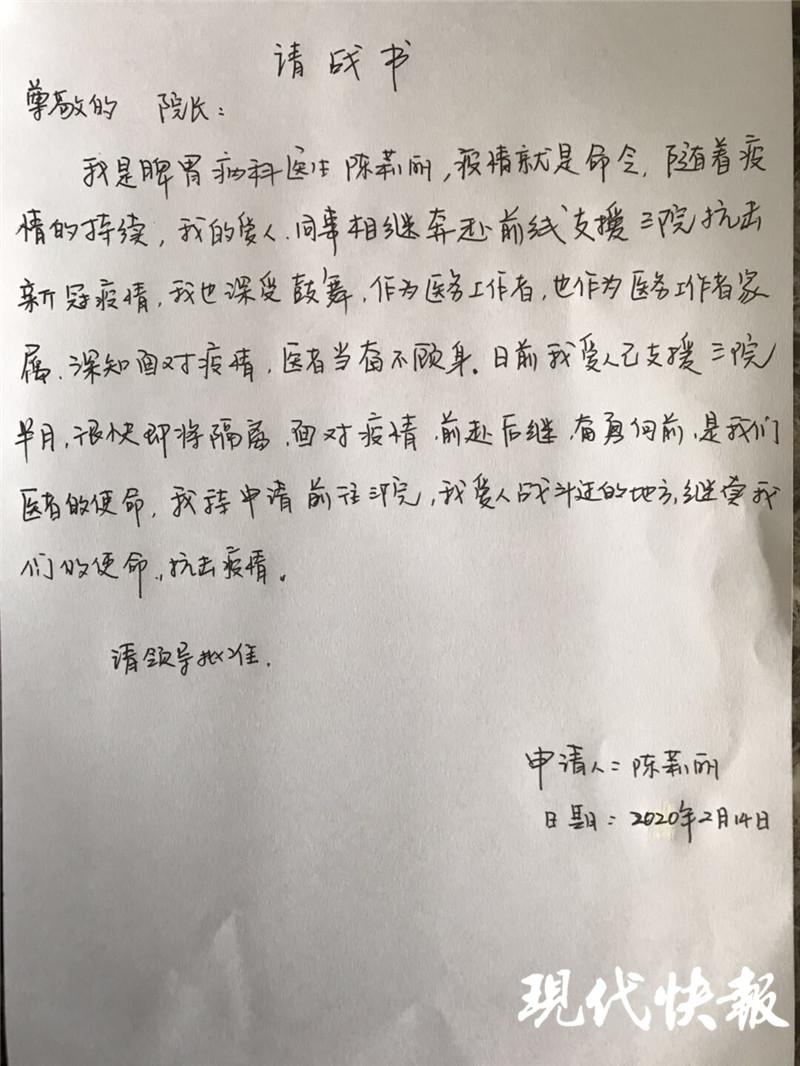 请战书
尊敬的 院长：
我是脾胃病科医生陈莉丽，疫情就是命令，随着疫
情的持续，我的爱人、同事相继奔赴前线支援三院抗击
新冠疫情，我也深受鼓舞，作为医务工作者，也作为医务工作者家
属、深知面对疫情，医者当奋不顾身。日前我爱人已支援三院
半月，很快即将隔离，面对疫情，前赴后继，奋勇向前，是我们
医者的使命，我特申请前往三院，我爱人战斗过的地方，继续我
们的使命，抗击疫情。
请领导批准。
申请人：陈莉丽
日期：2020年2月14日
現代快報